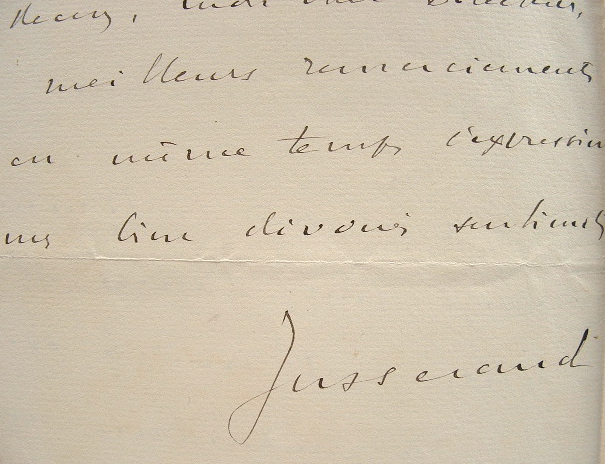 mon cher Directeur,
meilleurs remerciements
en même temps l'expression
mes bien dévoués sentiments
Jusserand